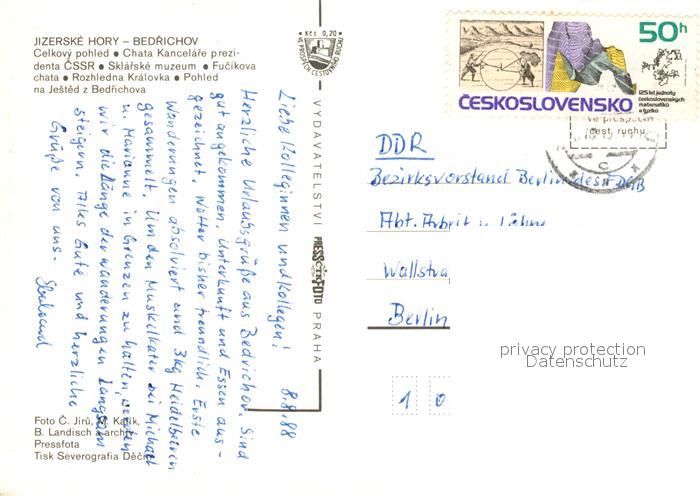 JIZERSKÉ HORY – BEDŘICHOV
Celkový pohled • Chata Kanceláře prezi-
denta ČSSR • Sklářské muzeum • Fučíkova
chata • Rozhledna Královka • Pohled
na Ještěd z Bedřichova
Kčs 0,20
VE PROSPĚCH CESTOVNÍHO RUCHU
50h
125 let jednoty
československých
matematiků
a fyziků
ČESKOSLOVENSKO
Ve prospěch
cest. ruchu
VYDAVATELSTVÍ PRESSFOTO PRAHA
8.8.88
Liebe Kolleginnen und Kollegen!
Herzliche Urlaubsgrüße aus Bedrichov. Sind
gut angekommen. Unterkunft und Essen aus-
gezeichnet. Wetter bisher freundlich. Erste
Wanderungen absolviert und 3kg Heidelbeeren
gesammelt. Um den Muskelkater bei Michael
u. Marianne in Grenzen zu halten, werden
wir die Länge der Wanderungen langsam
steigern. Alles Gute und herzliche
Grüße von uns.
DDR
Bezirksvorstand Berlin des
Abt. Arbeit u. Löhne
Wallstra
Berlin
1 0
privacy protection
Datenschutz
Foto Č. Jírů, M. Kalík,
B. Landisch a archiv
Pressfota
Tisk Severografia Děčín